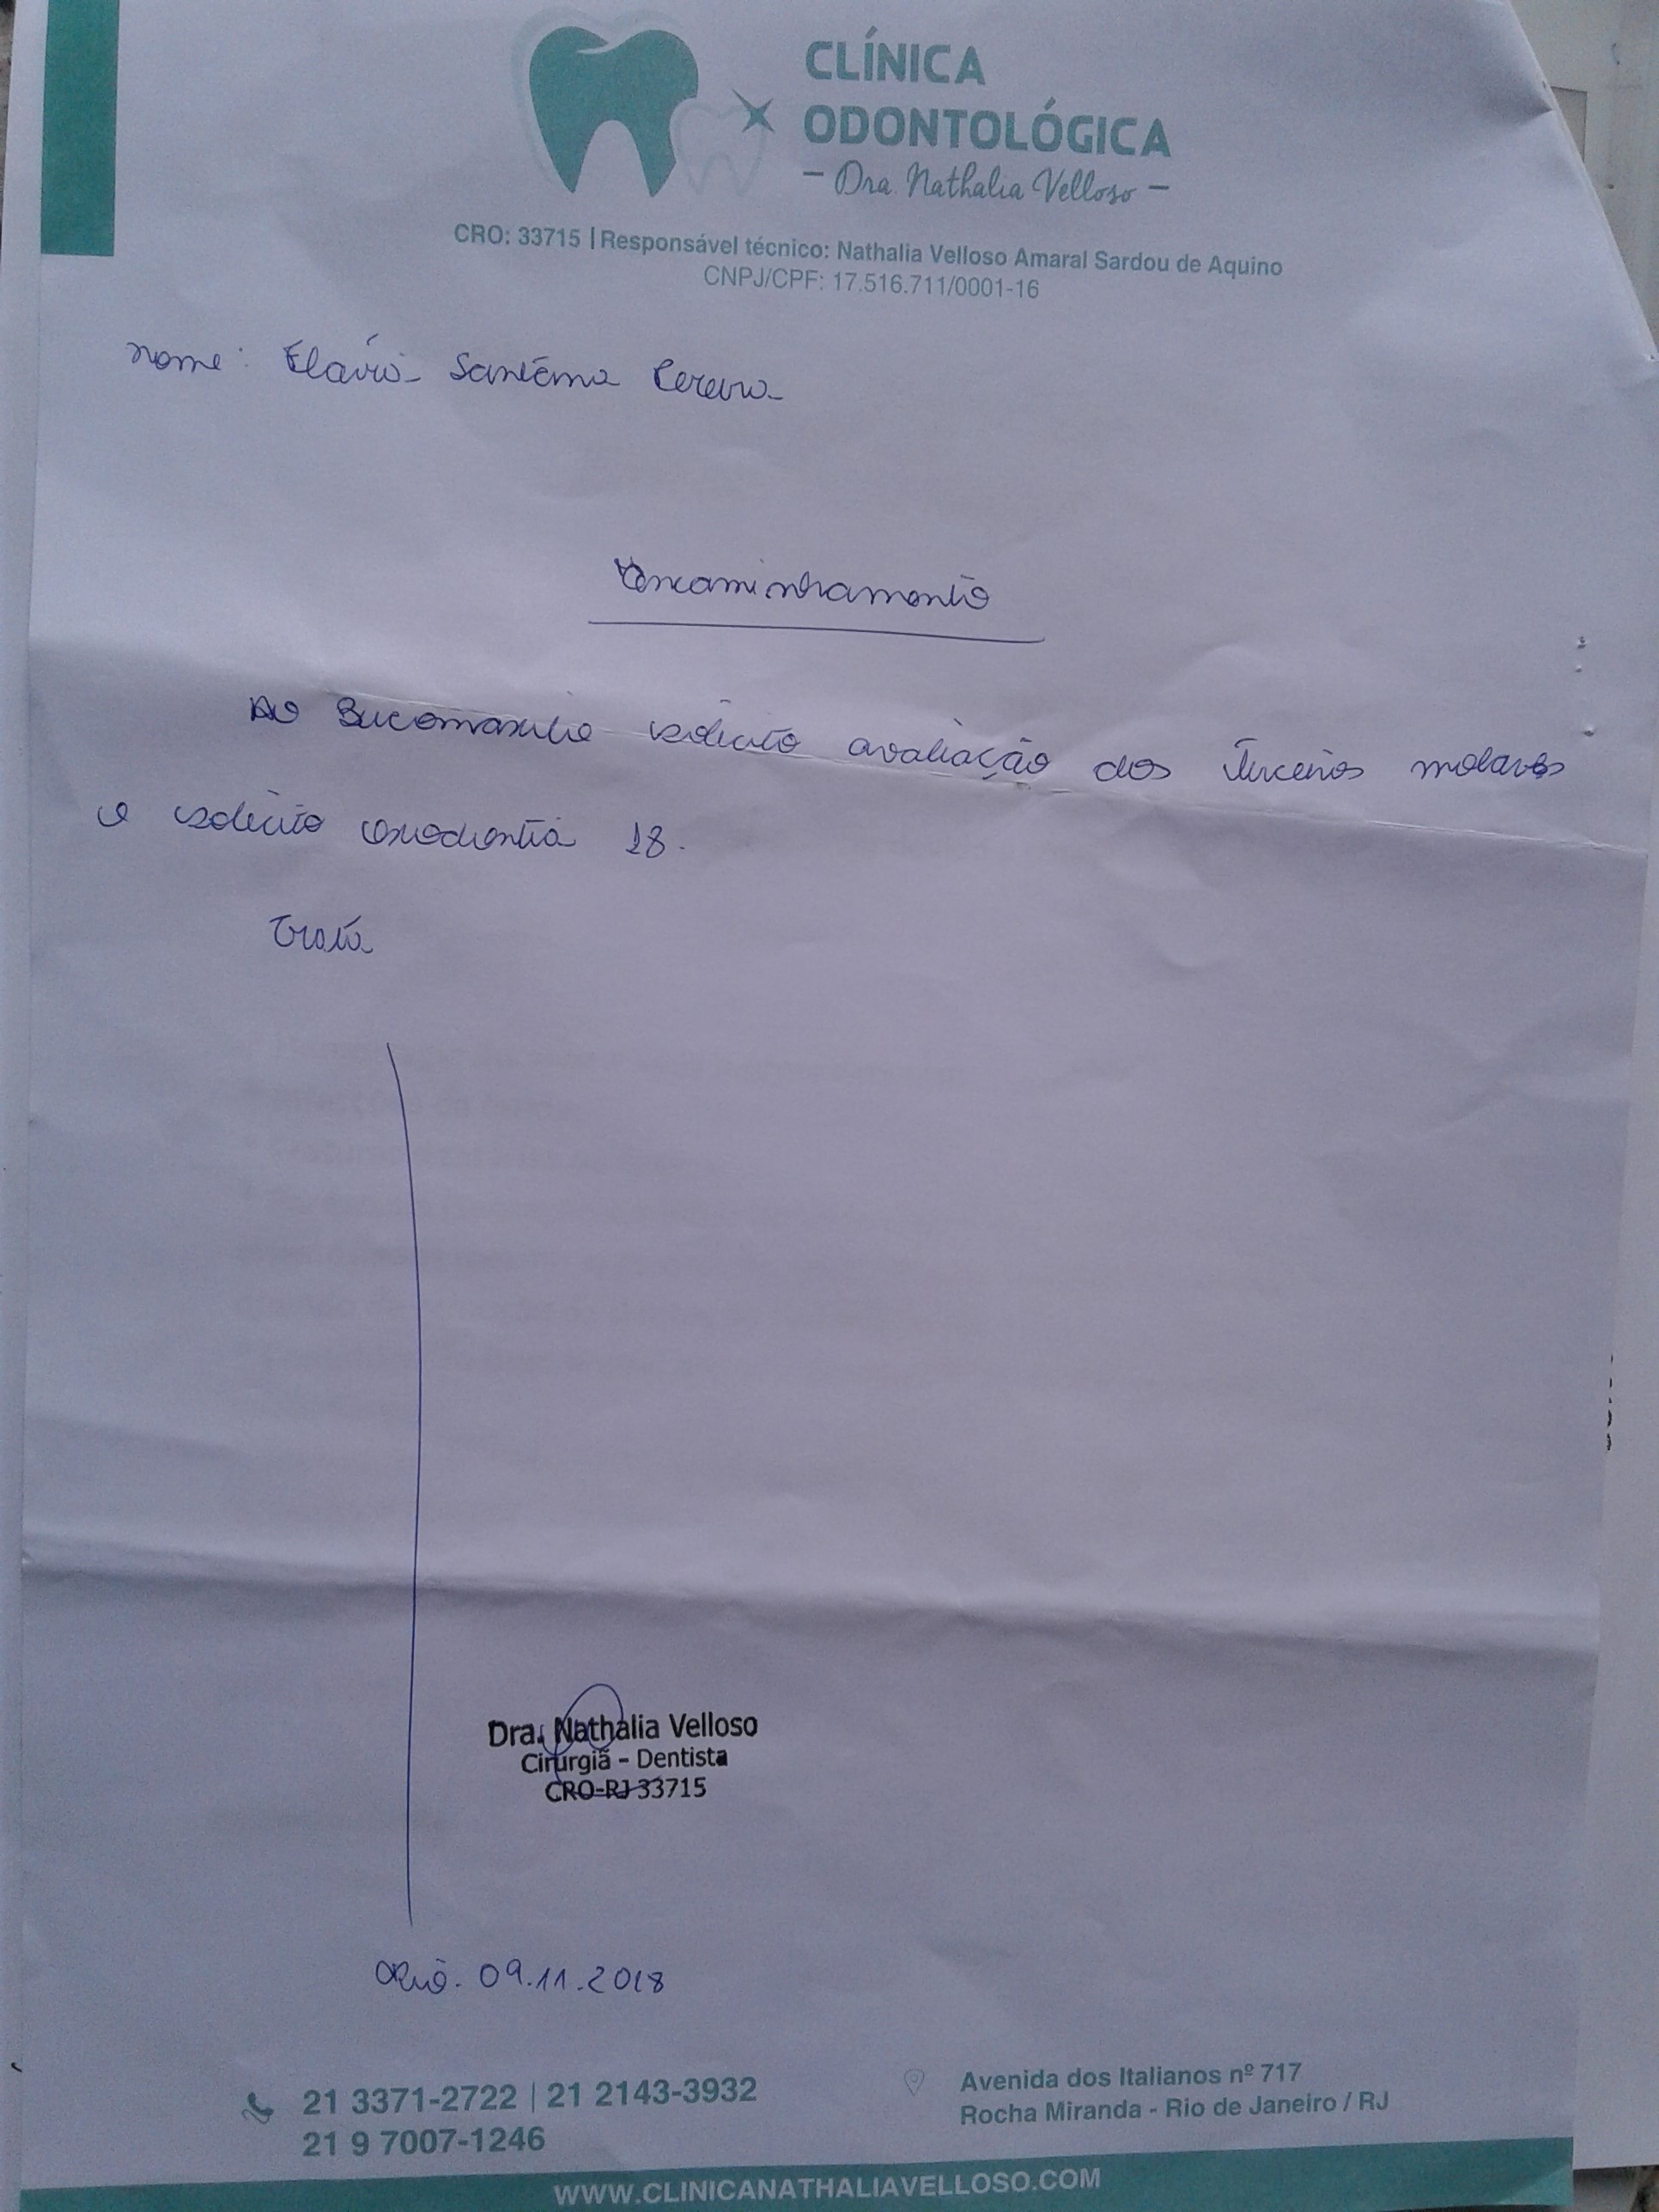 CLÍNICA
ODONTOLÓGICA
- Dra. Nathalia Velloso -
CRO: 33715 | Responsável técnico: Nathalia Velloso Amaral Sardou de Aquino
CNPJ/CPF: 17.516.711/0001-16
nome: Flávia Santana Pereira
Encaminhamento
Ao Bucomaxilo solicito avaliação dos terceiros molares
e solicito exodontia 18.
Grata
Dra. Nathalia Velloso
Cirurgiã - Dentista
CRO-RJ 33715
Rio. 09.11.2018
21 3371-2722 | 21 2143-3932
21 9 7007-1246
Avenida dos Italianos nº 717
Rocha Miranda - Rio de Janeiro / RJ
WWW.CLINICANATHALIAVELLOSO.COM